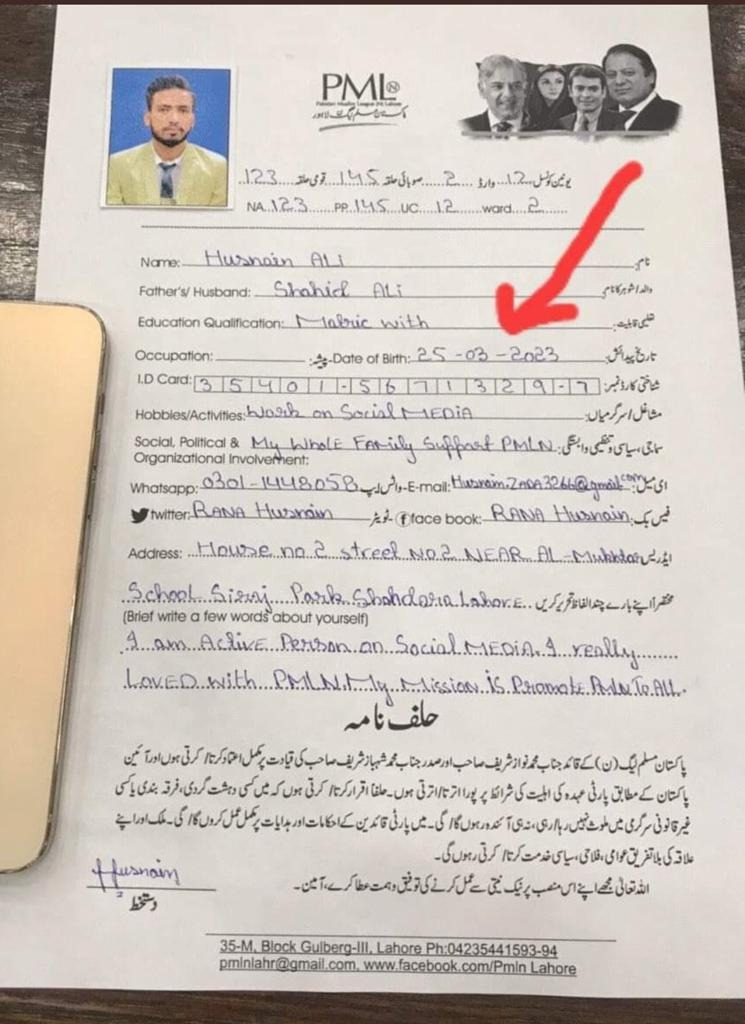 PML(N)
Pakistan Muslim League (N) Lahore
یونین کونسل 12 وارڈ 2 صوبائی حلقہ 145 قومی حلقہ 123
NA.123 PP.145 UC. 12 ward. 2
Name: Husnain ALi نام:
Father's/ Husband: Shahid ALi والد/شوہر کا نام:
Education Qualification: Matric with تعلیمی قابلیت:
Occupation: پیشہ: Date of Birth: 25-03-2023 تاریخ پیدائش:
I.D Card: 35401-5671329-7 شناختی کارڈ نمبر:
Hobbies/Activities: Work on Social MEDiA مشاغل/سرگرمیاں:
Social, Political & Organizational Involvement: My Whole Family Support PMLN سماجی، سیاسی و تنظیمی وابستگی:
Whatsapp: 0301-1448058 واٹس ایپ E-mail: Husnain.ZADA3266@gmail.com ای میل:
twitter: RANA Husnain ٹویٹر face book: RANA Husnain فیس بک:
Address: House no 2 street No.2 NEAR AL-Mukhtar ایڈریس
School Siraj Park Shahdara Lahore مختصراً اپنے بارے چند الفاظ تحریر کریں
(Brief write a few words about yourself)
I am Active Person on Social MEDiA. I really
LOVED with PMLN. My Mission is Promote PMLN To ALL.
حلف نامہ
پاکستان مسلم لیگ (ن) کے قائد جناب محمد نواز شریف صاحب اور صدر جناب محمد شہباز شریف صاحب کی قیادت پر مکمل اعتماد کرتا/ کرتی ہوں اور آئین
پاکستان کے مطابق پارٹی عہدہ کی اہلیت کی شرائط پر پورا اترتا/اترتی ہوں۔ حلفاً اقرار کرتا/ کرتی ہوں کہ میں کسی دہشت گردی، فرقہ بندی یا کسی
غیر قانونی سرگرمی میں ملوث نہیں رہا/رہی، نہ ہی آئندہ رہوں گا/گی۔ میں پارٹی قائدین کے احکامات اور ہدایات پر مکمل عمل کروں گا/ گی۔ ملک اور اپنے
علاقہ کی بلا تفریق عوامی، فلاحی، سیاسی خدمت کرتا/ کرتی رہوں گی۔
اللہ تعالیٰ مجھے اپنے اس منصب پر نیک نیتی سے عمل کرنے کی توفیق و ہمت عطا کرے، آمین۔
Husnain
دستخط
35-M, Block Gulberg-III, Lahore Ph:04235441593-94
pmlnlahr@gmail.com, www.facebook.com/Pmln Lahore